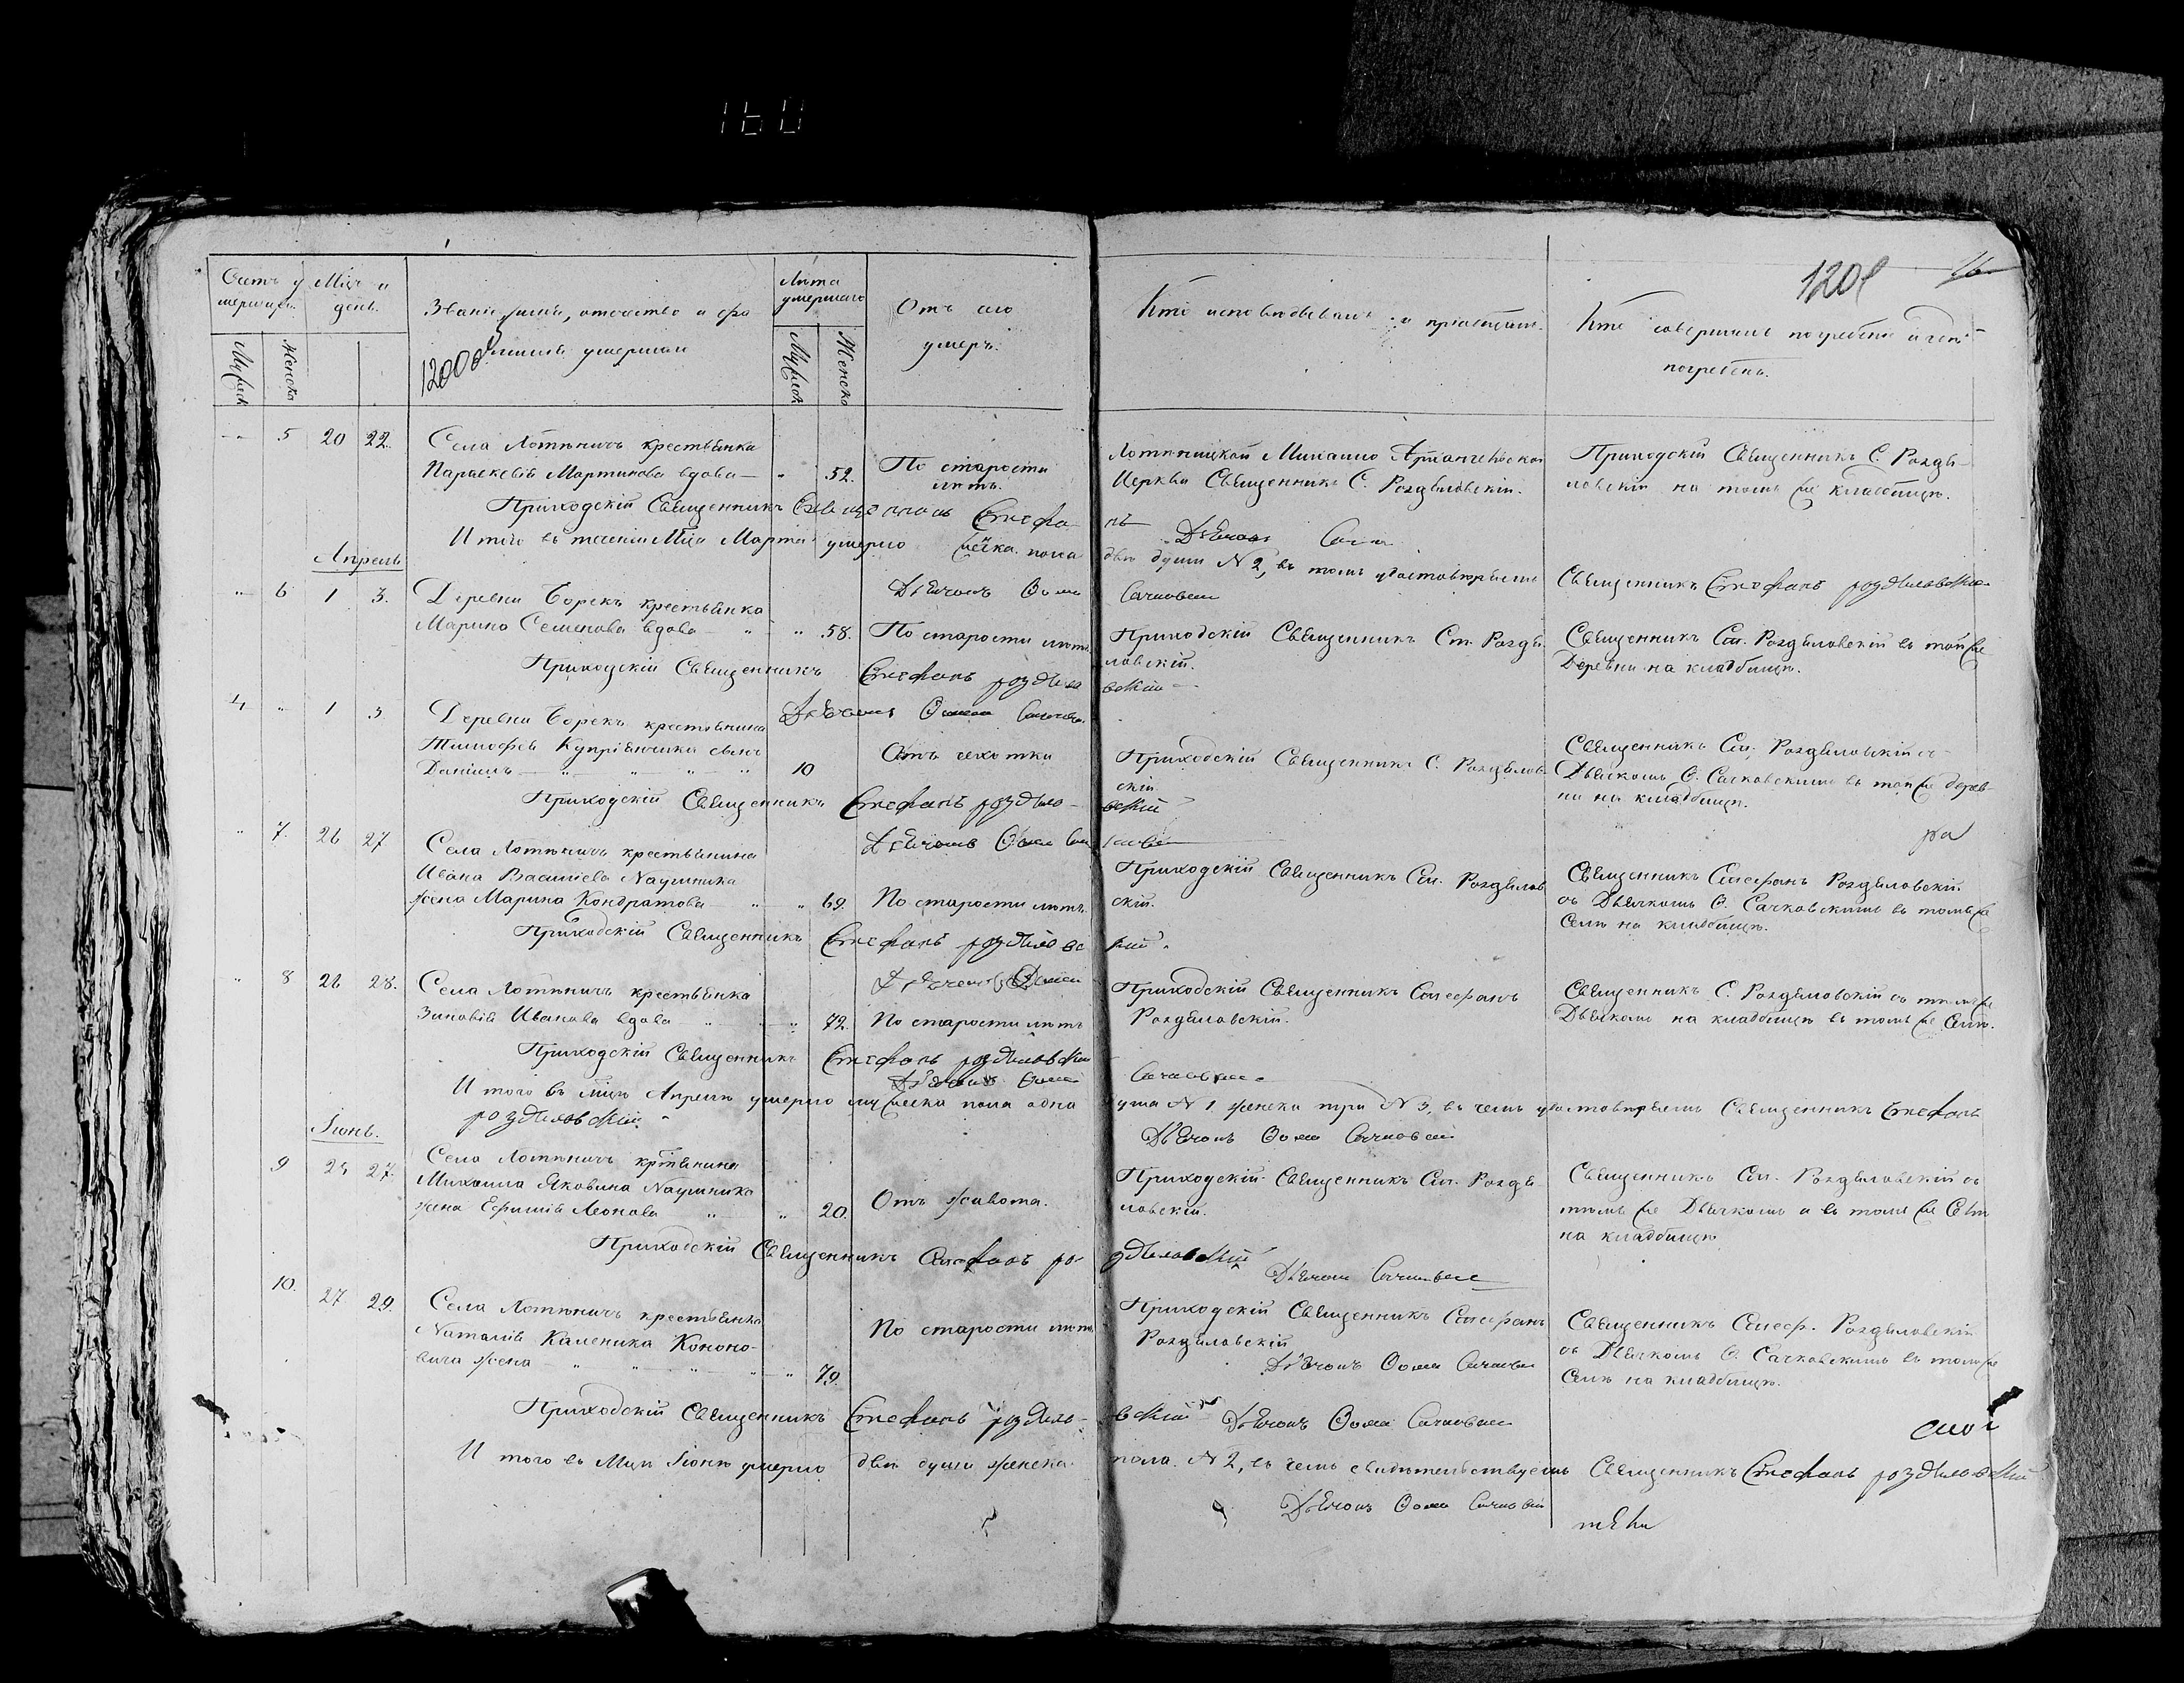 160
1201
16
Счетъ у мершихъ.
Мцъ и день.
Званіе, имя, отечество и фа
миліи умершаго
1200 об
Лѣта умершаго
Отъ чего умеръ.
Кто исповѣдывалъ и пріобщалъ.
Кто совершалъ погребеніе и гдѣ погребенъ.
Мужск
Женска
Мужск
Женско
5 20 22.
Села Лотвичъ крестьянка
Параскевія Мартинова вдова — 52.
По старости лѣтъ.
Михайло Архангельской
Церкви Священникъ С. Роздяловскій.
Приходскій Священникъ С. Роздя-
ловскій на томъ же кладбищѣ.
Приходскій Священникъ Стефа-
нъ
Дьячокъ
Итого въ теченіи Мца Марта умерло женска пола
двѣ души N 2, въ томъ удостовѣряемъ
Священникъ Стефанъ Роздяловскій
Дьячокъ Ѳома
Сачковскій
Апрель
6 1 3.
Деревни Борекъ крестьянка
Марина Семенова вдова 58.
По старости лѣтъ
Приходскій Священникъ Ст. Роздя-
ловскій.
Священникъ Ст. Роздяловскій въ той же
Деревни на кладбищѣ.
Приходскій Священникъ Стефанъ Роздяло
вскій
Дьячокъ Ѳома Сачковскій
4 1 3
Деревни Борекъ крестьянина
Тимофея Купріянчика сынъ
Даніилъ 10
Отъ чахотки
Приходскій Священникъ С. Роздялов-
скій
Священникъ Ст. Роздяловскій съ
Дьячкомъ Ѳ. Сачковскимъ въ той же дерев-
ни на кладбищѣ.
Приходскій Священникъ Стефанъ Роздяло-
вскій
Дьячокъ Ѳома
7. 26 27
Села Лотвичъ крестьянина
Ивана Васильева Наумчика
жена Марина Кондратова 69.
По старости лѣтъ.
Приходскій Священникъ Ст. Роздялов
скій.
Священникъ Стефанъ Роздяловскій
съ Дьячкомъ Ѳ. Сачковскимъ въ томъ же
Селѣ на кладбищѣ.
ра
Приходскій Священникъ Стефанъ Роздяловс
кій.
Дьячокъ Ѳома
8 26 28.
Села Лотвичъ крестьянка
Зиновія Иванова вдова 72.
По старости лѣтъ
Приходскій Священникъ Стефанъ
Роздяловскій.
Священникъ С. Роздяловскій съ тѣмъ же
Дьячкомъ на кладбищѣ въ томъ же Селѣ.
Приходскій Священникъ Стефанъ Роздяловскій
Дьячокъ Ѳома
Сачковскій
Итого въ Мцѣ Апрелѣ умерло мужеска пола одна
душа N 1 женска три N 3, въ чемъ удостовѣряемъ Священникъ Стефанъ
Роздяловскій
Дьячокъ Ѳома Сачковскій
Іюнь.
9 25 27.
Села Лотвичъ кртянина
Михаила Яковина Наумчика
жена Ефимія Леонова 20.
Отъ живота.
Приходскій Священникъ Ст. Роздя-
ловскій.
Священникъ Ст. Роздяловскій съ
тѣмъ же Дьячкомъ и въ томъ же Селѣ
на кладбищѣ
Приходскій Священникъ Стефанъ Ро-
здяловскій
Дьячокъ Сачковскій
10. 27 29.
Села Лотвичъ крестьянка
Наталія Каленика Кононо-
вича жена 79.
По старости лѣтъ
Приходскій Священникъ Стефанъ
Роздяловскій
Дьячокъ Ѳома Сачковскій
Священникъ Стеф. Роздяловскій
съ Дьячкомъ Ѳ. Сачковскимъ въ томъ же
Селѣ на кладбищѣ.
Приходскій Священникъ Стефанъ Роздяло-
вскій Дьячокъ Ѳома Сачковскій
Итого въ Мцѣ Іюнѣ умерло двѣ души женска
пола N 2, въ чемъ свидѣтельствуемъ Священникъ Стефанъ Роздяловскій
Дьячокъ Ѳома Сачковскій